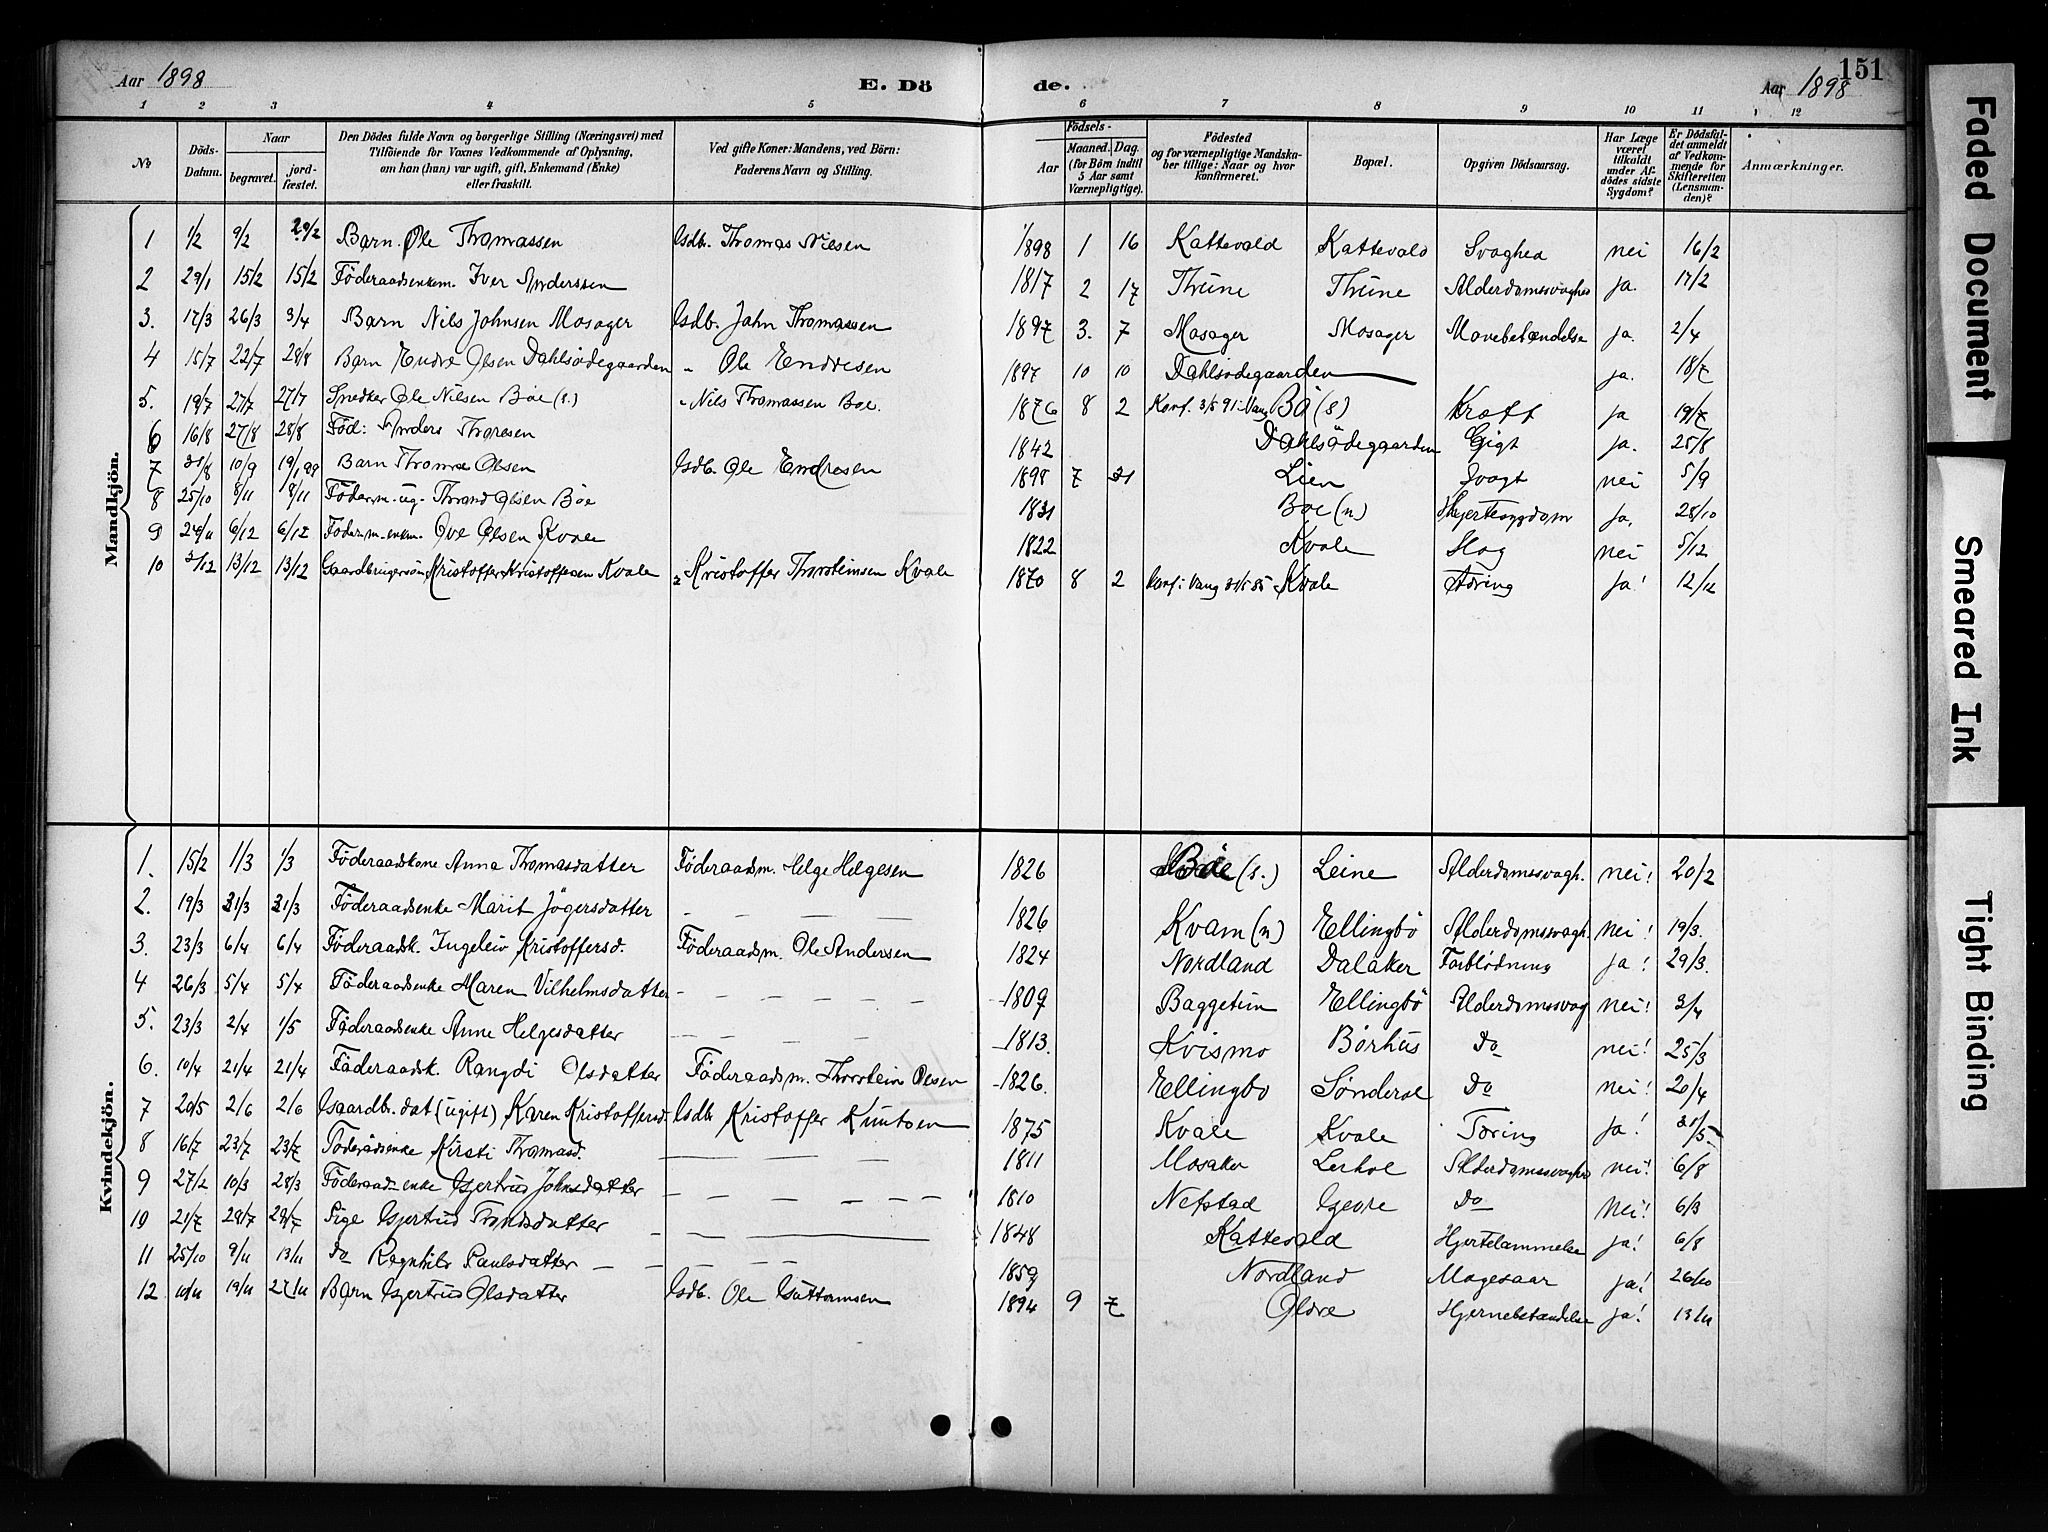 Aar 1898 E. Dö de. Aar 1898 151
1 2 3 4 5 6 7 8 9 10 11 12
No
Döds-Datum.
Naar
begravet.
jord-fæstet.
Den Dödes fulde Navn og borgerlige Stilling (Næringsvei) med
Tilföiende for Voxnes Vedkommende af Oplysning,
om han (hun) var ugift, gift, Enkemand (Enke)
eller fraskilt.
Ved gifte Koner: Mandens, ved Börn:
Faderens Navn og Stilling.
Födsels-
Aar
Maaned. Dag.
(for Börn indtil
5 Aar samt
Værnepligtige).
Födested
og for værnepligtige Mandska-
ber tillige: Naar og hvor
konfirmeret.
Bopæl.
Opgiven Dödsaarsag.
Har Læge
været
tilkaldt
under Af-
dödes sidste
Sygdom?
Er Dödsfal-
det anmeldt
af Vedkom-
mende for
Skifteretten
(Lensman-
den)?
Anmærkninger.
Mandkjön.
1 1/2 9/2 29/2 Barn Ole Thomassen Gsdb. Thomas Nilsen 1898 1 16 Kattevold Kattevold Svaghed nei 16/2
2 29/1 15/2 15/2 Föderaadsenkem. Iver Anderssen 1817 2 17 Thune Thune Alderdomssvaghed ja. 17/2
3. 17/3 26/3 3/4 Barn Nils Johnsen Mosager Gsdb. John Thomassen 1897 3. 7 Mosager Mosager Mavebetændelse ja. 2/4
4 15/7 22/7 28/8 Barn Endre Olsen Dahlsødegaarden " Ole Endresen 1897 10 10 Dahlsødegaarden ja. 18/7
5. 19/7 27/7 27/7 Snedker Ole Nilsen Böe (s.) " Nils Thomassen Boe. 1876 8 2 Konf. 3/5 91 Vang Bö (s) Kræft ja 19/7
6 16/8 27/8 28/8 Föd: Anders Thoresen 1842 Dahlsödegaarden Gigt ja. 25/8
7 31/8 10/9 19/1 99 Barn Thomas Olsen Gsdb. Ole Endresen 1898 7 31 Lien Svagt nei 5/9
8 25/10 8/11 8/11 Föderm. ug. Thrond Olsen Böe 1831 Boe (n) Hjertesygdom ja. 28/10
9 24/11 6/12 6/12 Föderm. enkem. Ove Olsen Kvale 1822 Kvale Slag nei 5/12
10 3/12 13/12 13/12 Gaardbrugersön Kristoffer Kristoffersen Kvale " Kristoffer Thorsteinsen Kvale 1870 8 2 Konf: Vang 31/5 85 Kvale Tæring ja! 12/12
Kvindekjön.
1. 15/2 1/3 1/3 Föderaadskone Anna Thomasdatter Föderaadsm. Helge Helgesen 1826 Böe (s.) Leine Alderdomssvagh. nei! 20/2
2. 19/3 31/3 31/3 Föderaadsenke Marit Jögersdatter — — — — 1826 Kvam (n) Ellingbö Alderdomssvagh. nei! 19/3.
3. 23/3 6/4 6/4 Föderaadsk. Ingeleiv Kristoffersd. Föderaadsm. Ole Andersen 1824 Nordland Dalaker Forblødning ja! 29/3.
4 26/3 5/4 5/4 Föderaadsenke Maren Vilhelmsdatter — — — — 1809 Baggetun Ellingbö Alderdomssvag nei! 3/4
5. 23/3 2/4 1/5 Föderaadsenke Anne Helgesdatter — — — — 1813. Kvismo Börhus Do nei! 25/3
6. 10/4 21/4 21/4 Föderaadsk. Rangdi Olsdatter Föderaadsm. Thorstein Olsen 1826. Ellingbo Sønderol Do nei! 20/4
7 20/5 2/6 2/6 Gaardb. dat (ugift) Karen Kristoffersd. Gsdb Kristoffer Knutsen 1875 Kvale Kvale Tæring ja! 21/5
8 16/7 23/7 23/7 Föderadsenke Kirsti Thomasd. — — — — 1811 Mosaker Lerhol Alderdomssvaghed nei! 6/8
9 27/2 10/3 28/3 Föderaadsenke Gjertrud Johnsdatter — — — — 1810 Nefstad Gjevre Do nei! 6/3
10 21/7 29/7 29/7 Pige Gjertrud Trondsdatter — — — 1848 Kattevold Hjertelammelse ja! 6/8
11 25/10 9/11 13/11 Do Ragnhild Paulsdatter — — — — 1859 Nordland Mavesaar ja! 26/10
12 10/11 19/11 27/11 Barn Gjertrud Olsdatter Gsdb. Ole Guttormsen 1894 9 7 Oldre Hjernebetændelse ja! 13/11
Faded Document
Smeared Ink
Tight Binding